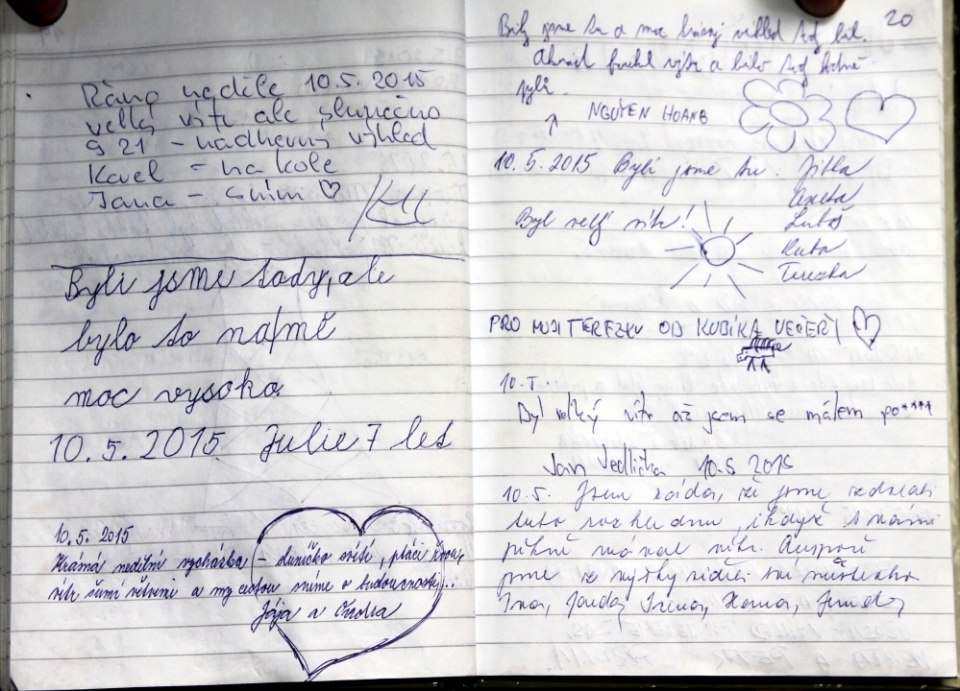 Ráno neděle 10.5. 2015
velký vítr ale slunečno
9 21 - nádherný výhled
Karel - na kole
Jana - s ním ♡
Byli jsme tady, ale
bylo to na mě
moc vysoko
10.5.2015 Julie 7 let
10.5.2015
Krásná nedělní vycházka - sluníčko svítí, ptáci
vítr šumí větvemi a my cestou sníme o budoucnosti...
Jája a
20
Byly jsme tu a moc krásný výhled tady byl.
výš a bylo
NGUYEN HOANG
10.5.2015 Byli jsme tu. Jitka
Aneta
Luboš
Kuba
Terezka
Byl velký vítr!
PRO MOJI TEREZKU OD KUBÍKA VEČEŘI
10.5.
Byl velký vítr až jsem se málem po****
Jan Jedlička 10.5 2015
10.5. Jsem ráda, že jsme
tuto rozhlednu, i když s námi
pěkně mával vítr. Aspoň
jsme z výšky viděli
Iva, Jarda, Irena, Hana,